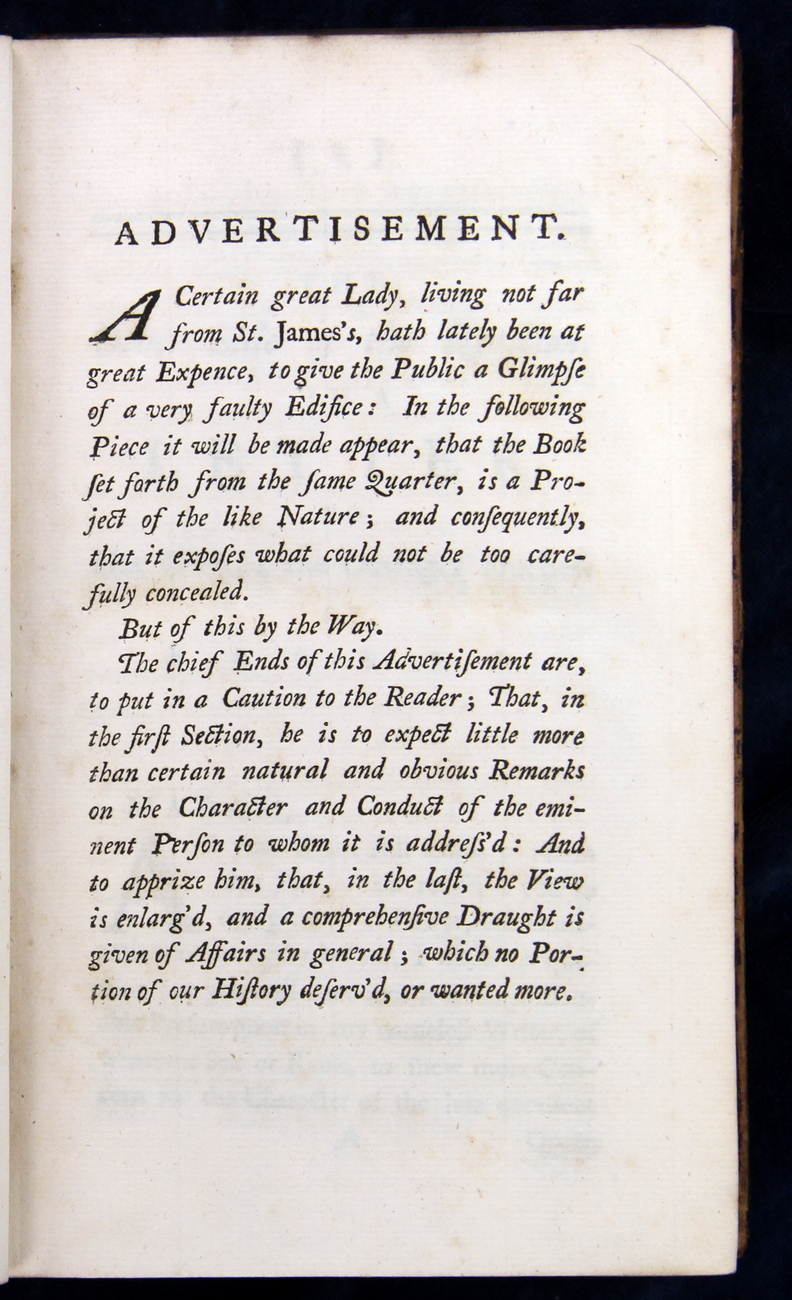 ADVERTISEMENT.
A Certain great Lady, living not far
from St. James's, hath lately been at
great Expence, to give the Public a Glimpſe
of a very faulty Edifice: In the following
Piece it will be made appear, that the Book
ſet forth from the ſame Quarter, is a Pro-
ject of the like Nature; and conſequently,
that it expoſes what could not be too care-
fully concealed.
But of this by the Way.
The chief Ends of this Advertiſement are,
to put in a Caution to the Reader; That, in
the firſt Section, he is to expect little more
than certain natural and obvious Remarks
on the Character and Conduct of the emi-
nent Perſon to whom it is addreſs'd: And
to apprize him, that, in the laſt, the View
is enlarg'd, and a comprehenſive Draught is
given of Affairs in general; which no Por-
tion of our Hiſtory deſerv'd, or wanted more.